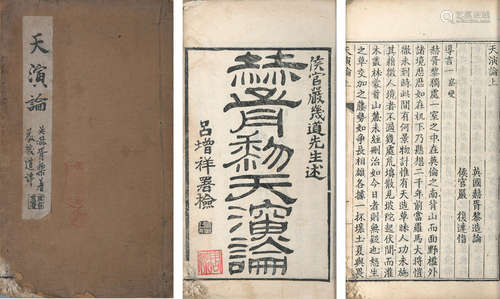 天演論
英赫胥黎著
嚴幾道譯
矦官嚴幾道先生述
赫胥黎天演論
呂增祥署檢
天演論上
英國赫胥黎造論
侯官嚴 復達恉
導言一 察變
赫胥黎獨處一室之中在英倫之南背山而面野檻外
諸境歷歷如在机下乃懸想二千年前當羅馬大將愷
徹未到時此間有何景物計惟有天造草昧人功未施
其藉徵人境者不過幾處荒墳散見坡陀起伏間而灌
木叢林蒙茸山麓未經刪治如今日者則無疑也怒生
之草交加之藤勢如爭長相雄各據一抔壤土夏與畏
天演論上